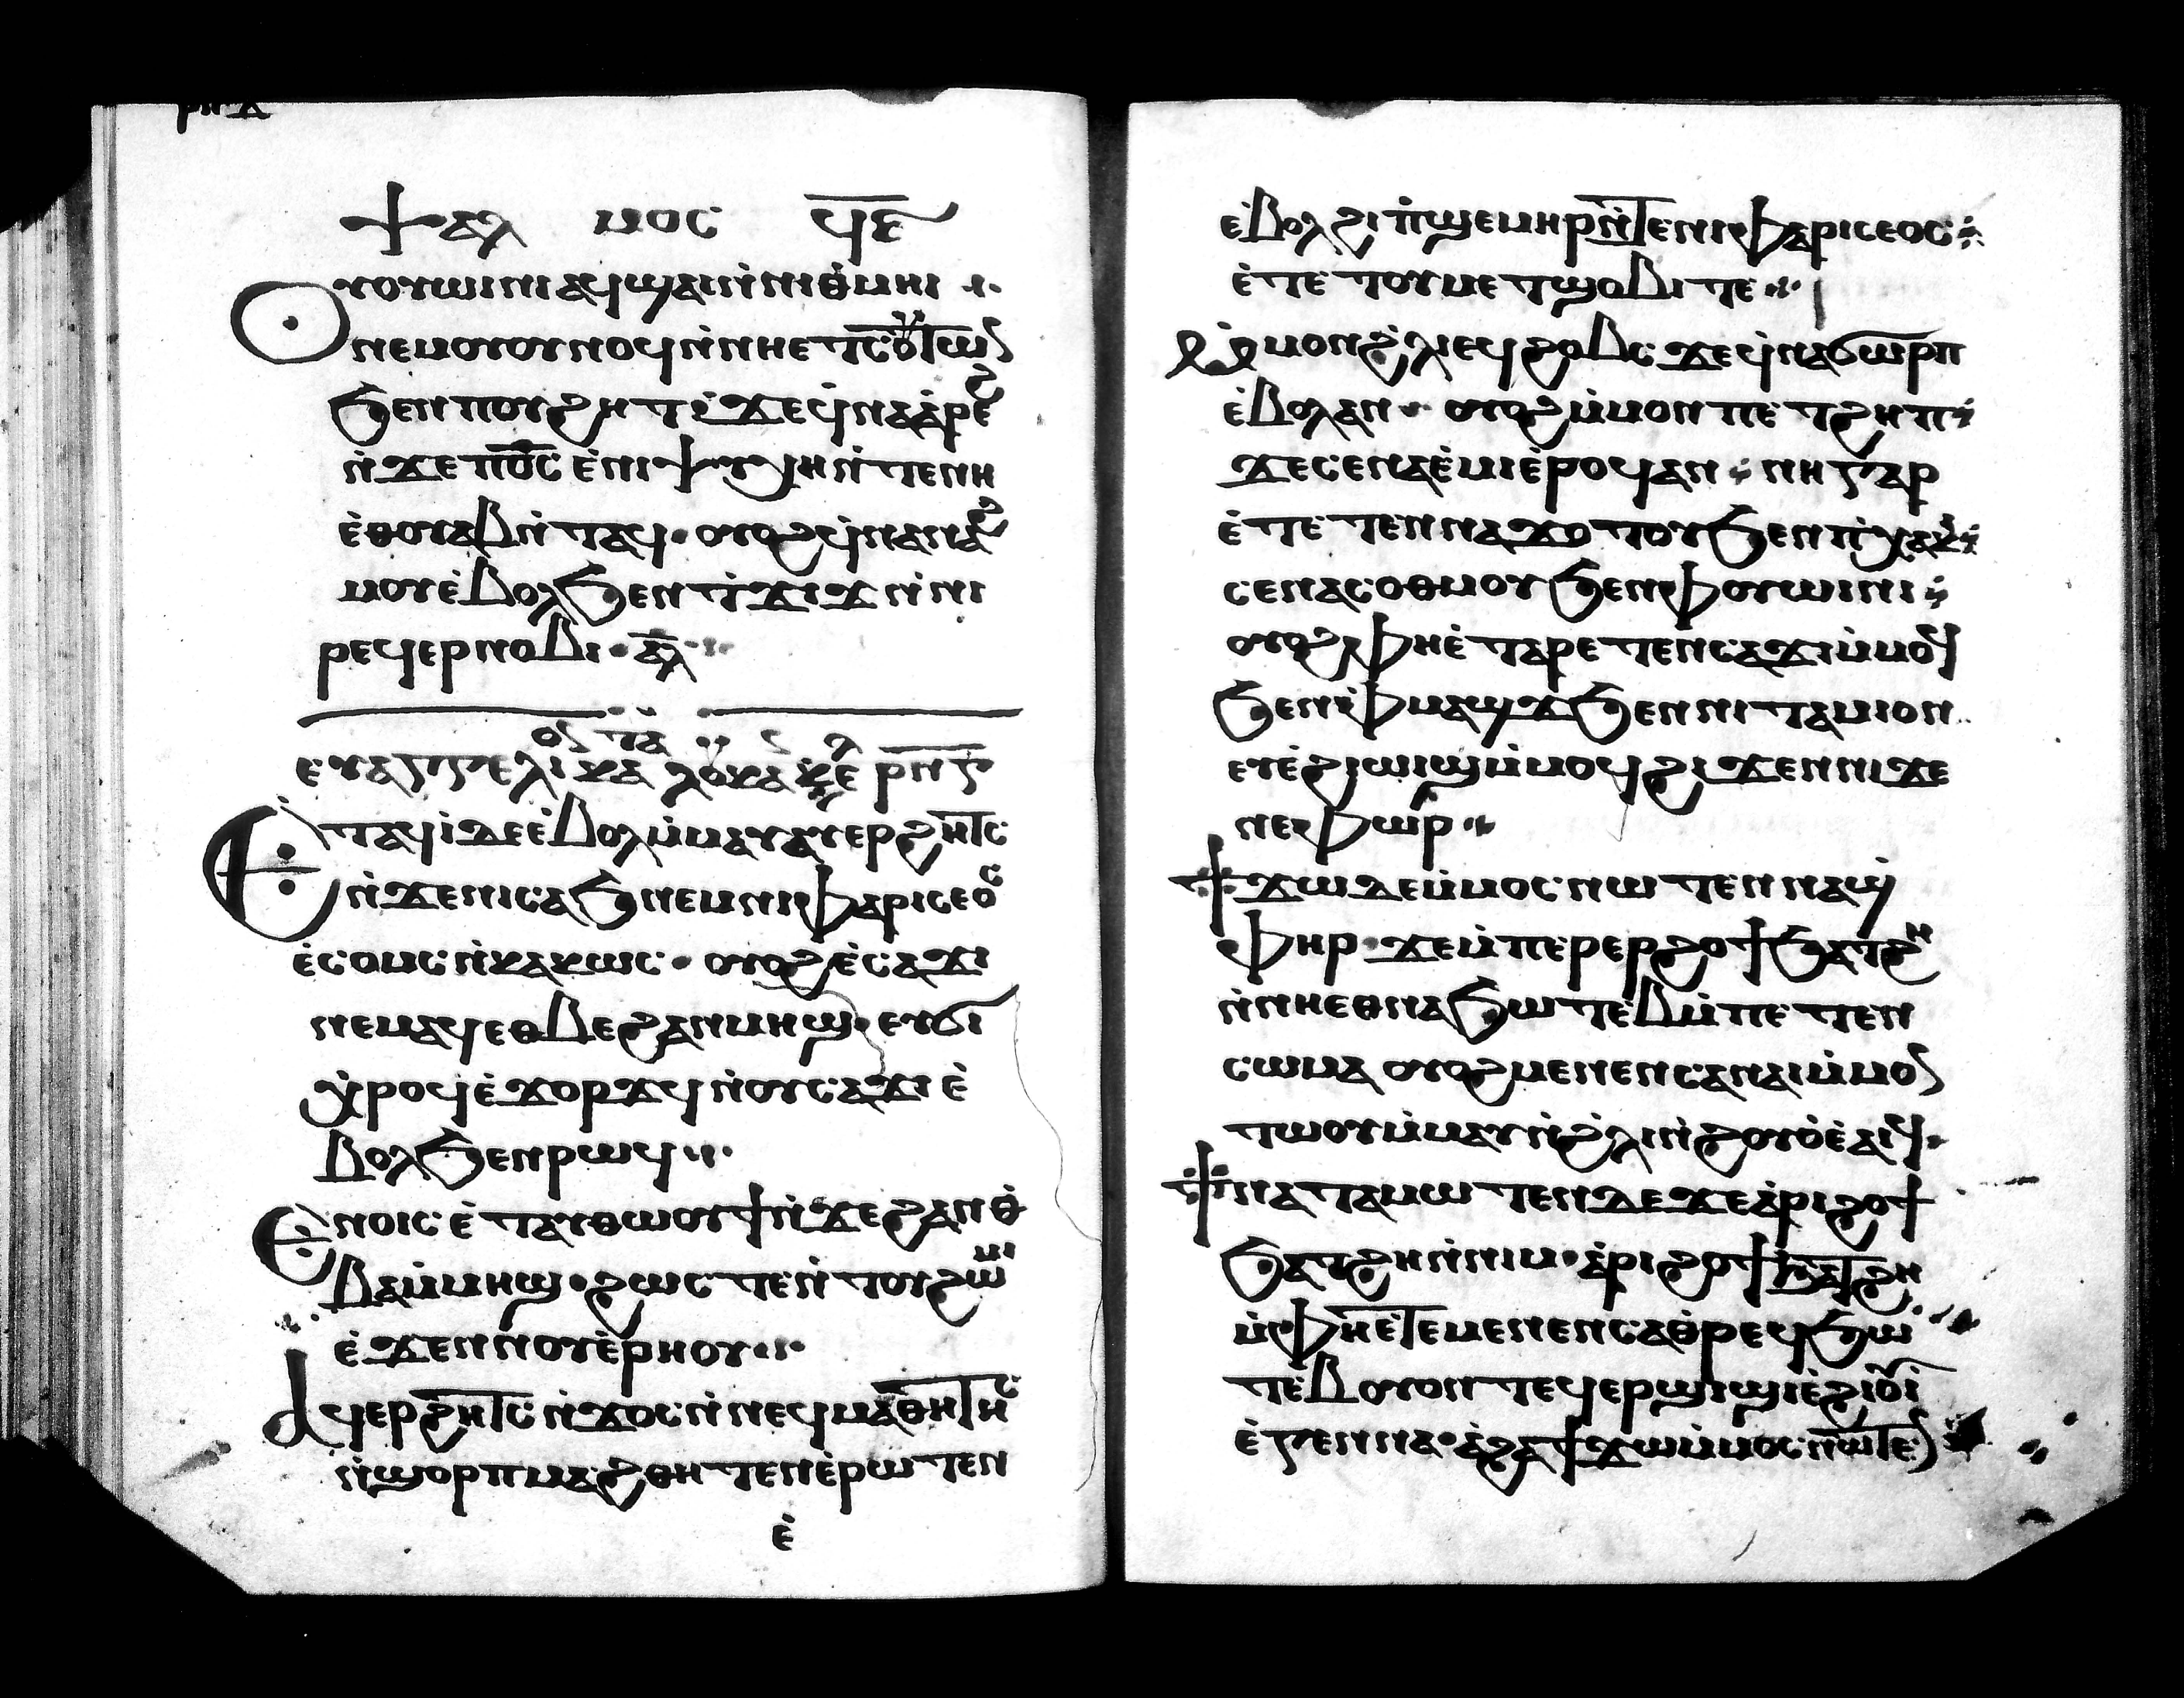 ⲯⲁⲗ ⲙⲟⲥ ϥ̅ⲋ̅
Ⲟⲩⲟⲩⲱⲓⲛⲓ ⲁϥϣⲁⲓ ⲛ̇ⲛⲓⲑ̇ⲙⲏⲓ
ⲛⲉⲙ ⲟⲩⲟⲩⲛⲟϥ ⲛ̇ⲛⲏⲉⲧⲥⲟⲩⲧⲱⲛ
ϧⲉⲛ ⲡⲟⲩϩⲏⲧ ϫⲉ ϥ̇ⲛⲁⲁ̇ⲣⲉϩ
ⲛ̇ϫⲉ ⲡⲟ̅ⲥ̅ ⲉ̇ⲛⲓⲯⲩⲭⲏ ⲛ̇ⲧⲉ ⲛⲏ
ⲉ̇ⲑⲟⲩⲁⲃ ⲛ̇ⲧⲁϥ ⲟⲩⲟϩ ϥ̇ⲛⲁⲛⲁϩ
ⲙⲟⲩ ⲉ̇ⲃⲟⲗϧⲉⲛ ⲧ̇ϫⲓϫ ⲛ̇ⲛⲓ
ⲣⲉϥⲉⲣⲛⲟⲃⲓ ⲁ̅ⲗ̅
ⲉⲩⲁⲅⲅⲉⲗⲓⲟⲛ ⲕⲁⲧⲁ ⲗⲟⲩⲕⲁⲛ ⲕⲉ ⲣ̅ⲛ̅ⲅ̅
Ⲉ̇ⲧⲁϥⲓ̇ ⲇⲉ ⲉ̇ⲃⲟⲗ ⲙ̇ⲙⲁⲩ ⲁⲩⲉⲣϩⲏⲧⲥ
ⲛ̇ϫⲉ ⲛⲓⲥⲁϧ ⲛⲉⲙ ⲛⲓⲫⲁⲣⲓⲥⲉⲟⲥ
ⲉ̇ⲥⲟⲙⲥ ⲛ̇ⲕⲁⲕⲱⲥ ⲟⲩⲟϩ ⲉ̇ⲥⲁϫⲓ
ⲛⲉⲙⲁϥ ⲉⲑⲃⲉ ϩⲁⲛⲙⲏϣ ⲉⲩϭⲓ
ⲭ̇ⲣⲟϥ ⲉ̇ϫⲟⲣϫϥ ⲛ̇ⲟⲩⲥⲁϫⲓ ⲉ̇
ⲃⲟⲗϧⲉⲛ ⲣⲱϥ
Ⲉⲛⲟⲓⲥ ⲉ̇ⲧⲁⲩⲑⲱⲟⲩϯ ⲛ̇ϫⲉ ϩⲁⲛⲑ̇
ⲃⲁ ⲙ̇ⲙⲏϣ ϩⲱⲥⲧⲉ ⲛ̇ⲧⲟⲩϩⲱⲙⲓ
ⲉ̇ϫⲉⲛ ⲛⲟⲩⲉ̇ⲣⲏⲟⲩ
Ⲁϥⲉⲣϩⲏⲧⲥ ⲛ̇ϫⲟⲥ ⲛ̇ⲛⲉϥⲙⲁⲑⲏⲧⲏⲥ
ⲛ̇ϣⲟⲣⲡ ⲙⲁϩⲑⲏⲧⲉⲛ ⲉ̇ⲣⲱⲧⲉⲛ
ⲉ̇
ⲉ̇ⲃⲟⲗϩⲓ ⲡ̇ϣⲉⲙⲏⲣ ⲛ̇ⲧⲉ ⲛⲓⲫⲁⲣⲓⲥⲉⲟⲥ
ⲉ̇ⲧⲉ ⲧⲟⲩⲙⲉⲧϣⲟⲃⲓ ⲧⲉ
Ⲙ̇ⲙⲟⲛ ϩ̇ⲗⲓ ⲉϥϩⲟⲃⲥ ϫⲉ ϥ̇ⲛⲁϭⲱⲣⲡ
ⲉ̇ⲃⲟⲗ ⲁⲛ ⲟⲩⲟϩ ⲙ̇ⲙⲟⲛ ⲡⲉⲧϩⲏⲡ
ϫⲉ ⲥⲉⲛⲁⲉ̇ⲙⲓ ⲉ̇ⲣⲟϥ ⲁⲛ ⲛⲏ ⲅⲁⲣ
ⲉ̇ⲧⲉⲧⲉⲛⲛⲁϫⲟⲧⲟⲩ ϧⲉⲛ ⲡ̇ⲭⲁⲕⲓ
ⲥⲉⲛⲁⲥⲟⲑⲙⲟⲩ ϧⲉⲛ ⲫⲟⲩⲱⲓⲛⲓ
ⲟⲩⲟϩ ⲫⲏ ⲉ̇ⲧⲁⲣⲉⲧⲉⲛⲥⲁϫⲓ ⲙ̇ⲙⲟϥ
ϧⲉⲛ ⲫⲙⲁϣϫ ϧⲉⲛ ⲛⲓⲧⲁⲙⲓⲟⲛ
ⲉⲩⲉ̇ϩⲓⲱⲓϣ ⲙ̇ⲙⲟϥ ϩⲓϫⲉⲛ ⲛⲓϫⲉ
ⲛⲉⲫⲱⲣ
Ϯϫⲱ ⲇⲉ ⲙ̇ⲙⲟⲥ ⲛⲱⲧⲉⲛ ⲛⲁϣ
ⲫⲏⲣ ϫⲉ ⲙ̇ⲡⲉⲣⲉⲣϩⲟϯ ϧⲁⲧϩⲏ
ⲛ̇ⲛⲏⲉⲑⲛⲁϧⲱⲧⲉⲃ ⲙ̇ⲡⲉⲧⲉⲛ
ⲥⲱⲙⲁ ⲟⲩⲟϩ ⲙⲉⲛⲉⲛⲥⲁ ⲛⲁⲓ ⲙ̇ⲙⲟⲛ
ⲧⲱⲟⲩ ⲙ̇ⲙⲁⲩ ⲛ̇ϩ̇ⲗⲓ ⲛ̇ϩⲟⲩⲟ̇ ⲉ̇ⲁⲓϥ
Ϯⲛⲁⲧⲁⲙⲱⲧⲉⲛ ⲇⲉ ϫⲉ ⲁ̇ⲣⲓϩⲟϯ
ϧⲁⲧϩⲏ ⲛ̇ⲛⲓⲙ ⲁ̇ⲣⲓϩⲟϯ ϧⲁⲧϩⲏ
ⲙ̇ⲫⲏ ⲉ̇ⲧⲉ ⲙⲉⲛⲉⲛⲥⲁ ⲑⲣⲉϥϧⲱ
ⲧⲉⲃ ⲟⲩⲟⲛⲧⲉϥ ⲉⲣϣⲓϣⲓ ⲉ̇ϩⲓⲟⲩⲓ̇
ⲉ̇ⲅⲉⲛⲛⲁ ⲁ̇ϩⲁ ϯϫⲱ ⲙ̇ⲙⲟⲥ ⲛⲱⲧⲉⲛ